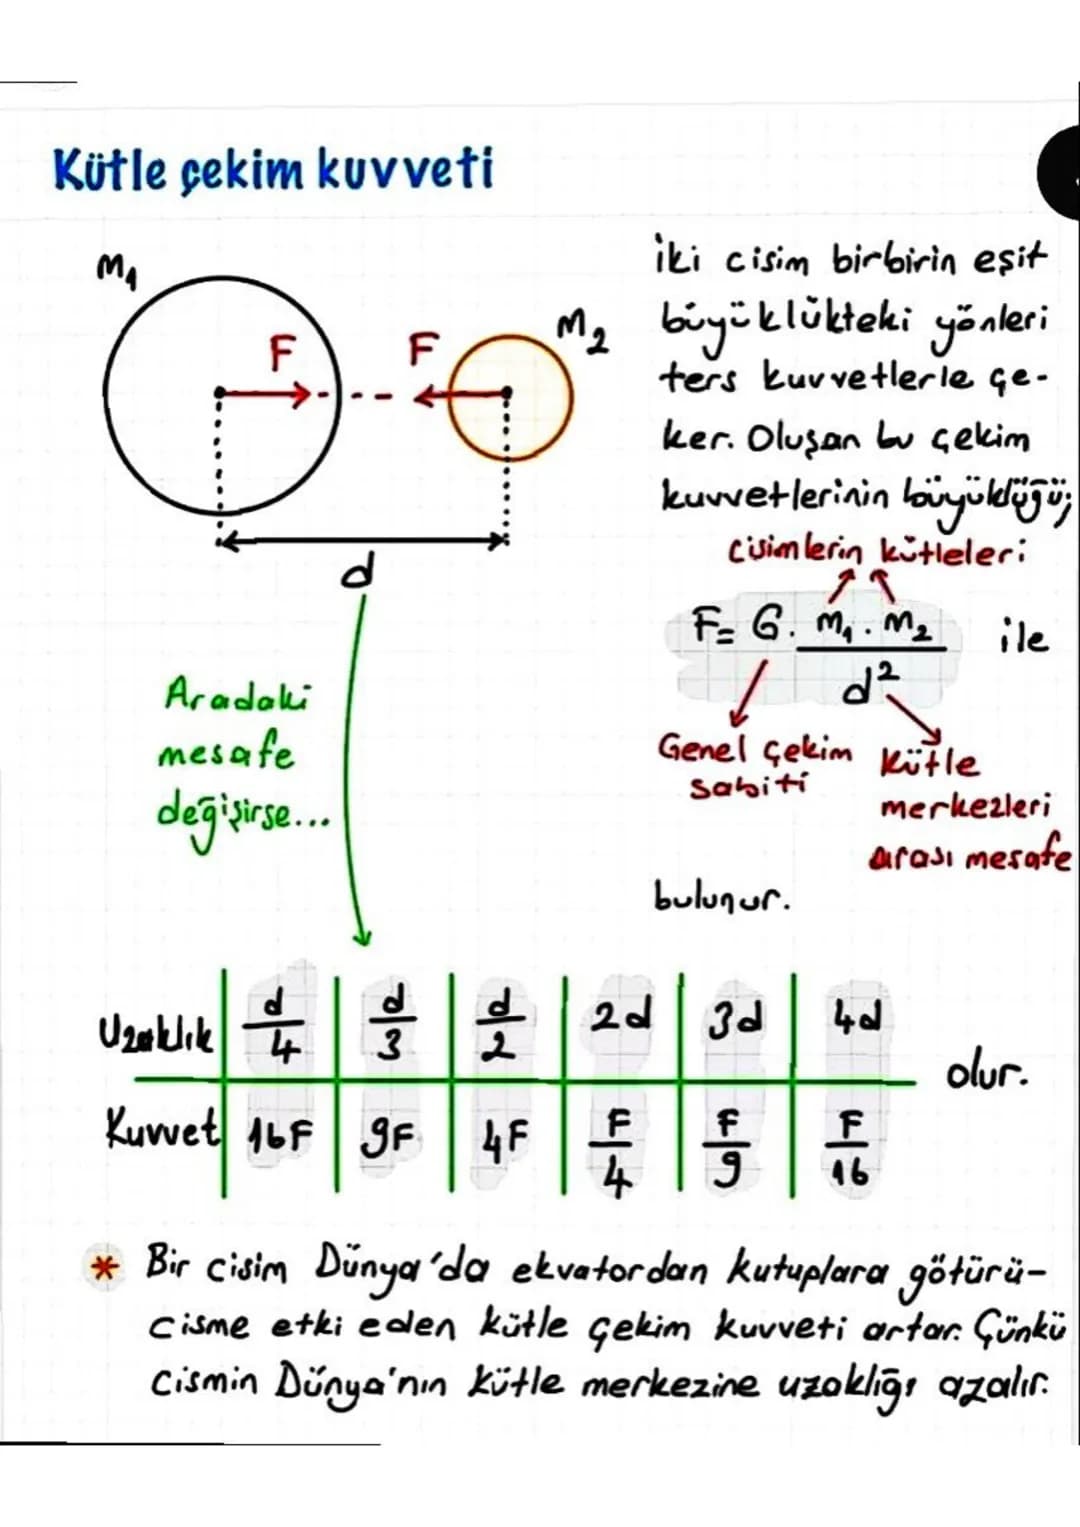 Kütle çekim kuvveti
m₁
F
F
m₂
d
İki cisim birbirin eşit
büyüklükteki yönleri
ters kuvvetlerle çe-
ker. Oluşan bu çekim
kuvvetlerinin büyüklüğü;
cisimlerin kütleleri
F = G. m₁. m₂ / d² ile
Genel çekim
sabiti
Kütle
merkezleri
arası mesafe
bulunur.
Aradaki
mesafe
değişirse...
Uzaklık d/4 d/3 d/2 2d 3d 4d
Kuvvet 16F 9F 4F F/4 F/9 F/16
olur.
* Bir cisim Dünya'da ekvatordan kutuplara götürü-
cisme etki eden kütle çekim kuvveti artar. Çünkü
cismin Dünya'nın kütle merkezine uzaklığı azalır.